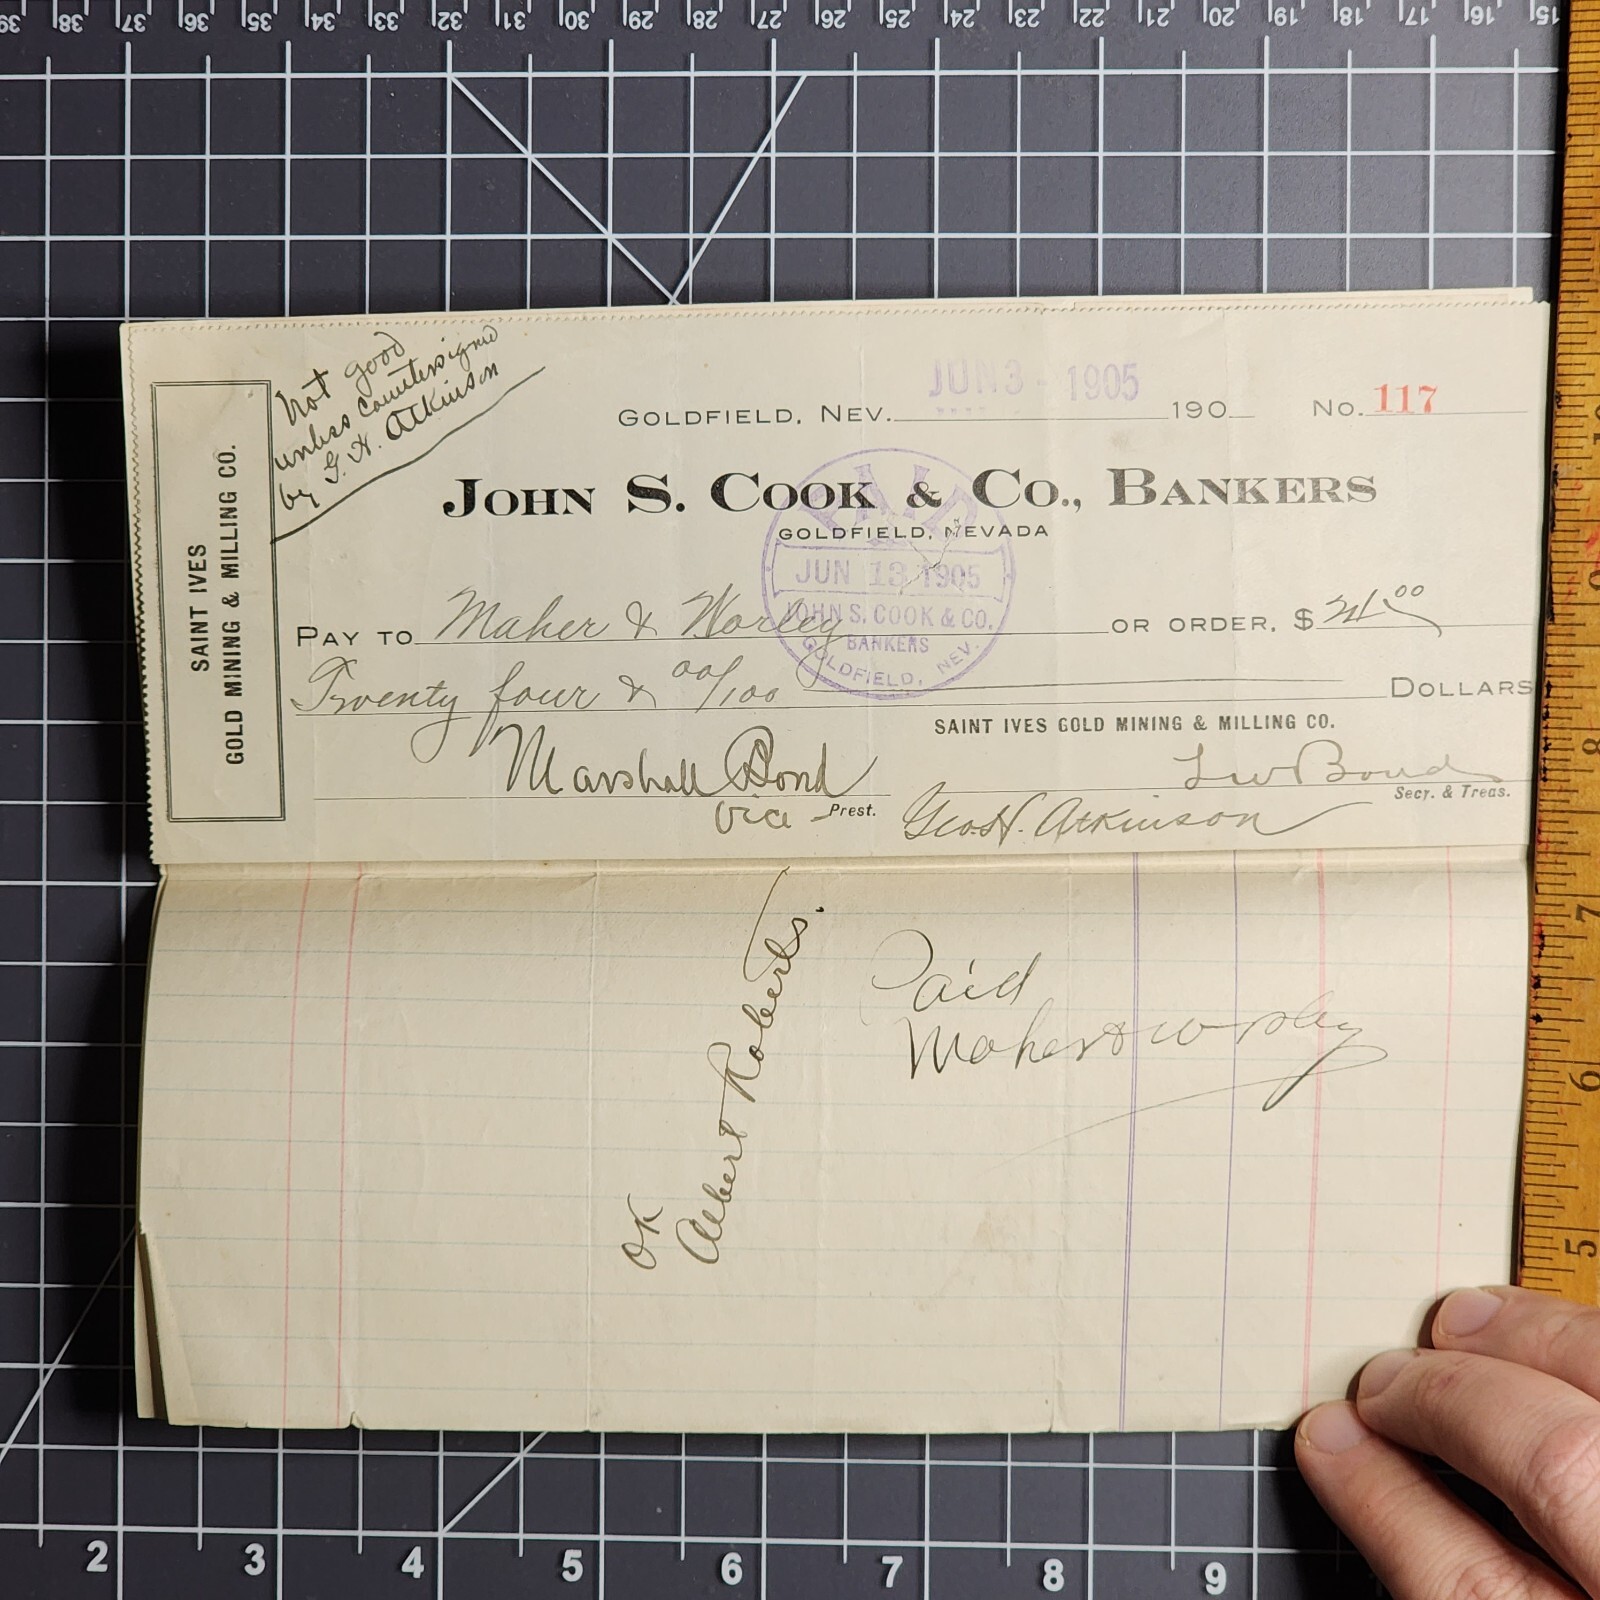 39 38 37 36 35 34 33 32 31 30 29 28 27 26 25 24 23 22 21 20 19 18 17 16 15
Not good
unless countersigned
by G. H. Atkinson
SAINT IVES
GOLD MINING & MILLING CO.
JUN 3 - 1905
GOLDFIELD, NEV. 190 No. 117
JOHN S. COOK & CO., BANKERS
GOLDFIELD, NEVADA
PAID
JUN 13 1905
JOHN S. COOK & CO.
BANKERS
GOLDFIELD, NEV.
PAY TO Maher & Worley OR ORDER, $ 24.00
Twenty four & 00/100 DOLLARS
SAINT IVES GOLD MINING & MILLING CO.
Marshall Bond
Vice Prest.
L W Bond
Secy. & Treas.
Geo. H. Atkinson
OK
Albert Roberts.
Paid
Maher & Worley
2 3 4 5 6 7 8 9
8
7
6
5